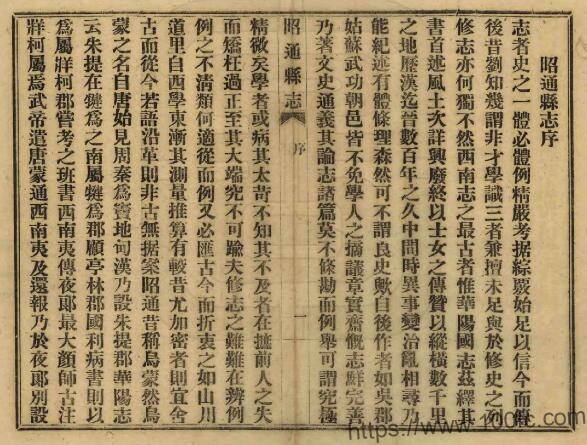 昭通縣志序
志者史之一體必體例精嚴考据綜覈始足以信今而傳
後昔劉知幾謂非才學識三者兼擅未足與於修史之列
修志亦何獨不然西南志之最古者惟華陽國志茲繹其
書首述風土次詳興廢終以士女之傳贊以縱橫數千里
之地歷漢迄晉數百年之久中間時異事變治亂相尋乃
能紀述有體條理森然可不謂良史歟自後作者如吳郡
姑蘇武功朝邑皆不免學人之摘議章實齋慨志鮮完善
乃著文史通義其論志諸篇莫不條勘而例舉可謂究極
昭通縣志
序
一
精微矣學者或病其太苛不知其不及者在摭前人之失
而矯枉過正至其大端究不可踰夫修志之難難在辨例
例之不清類何適從而例又必匯古今而折衷之如山川
道里自西學東漸其測量推算有較昔尤加密者則宜舍
古而從今若語沿革則非古無据案昭通昔稱烏蒙然烏
蒙之名自唐始見周秦爲竇地甸漢乃設朱提郡華陽志
云朱提在犍爲之南屬犍爲郡顧亭林郡國利病書則以
爲屬牂柯郡嘗考之班書西南夷傳夜郞最大顏師古注
牂柯屬焉武帝遣唐蒙通西南夷及還報乃於夜郞別設
https://www.100cc.com